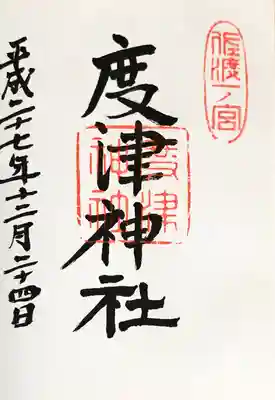 佐渡一ノ宮
度津神社
度津神社
平成二十七年十二月二十四日